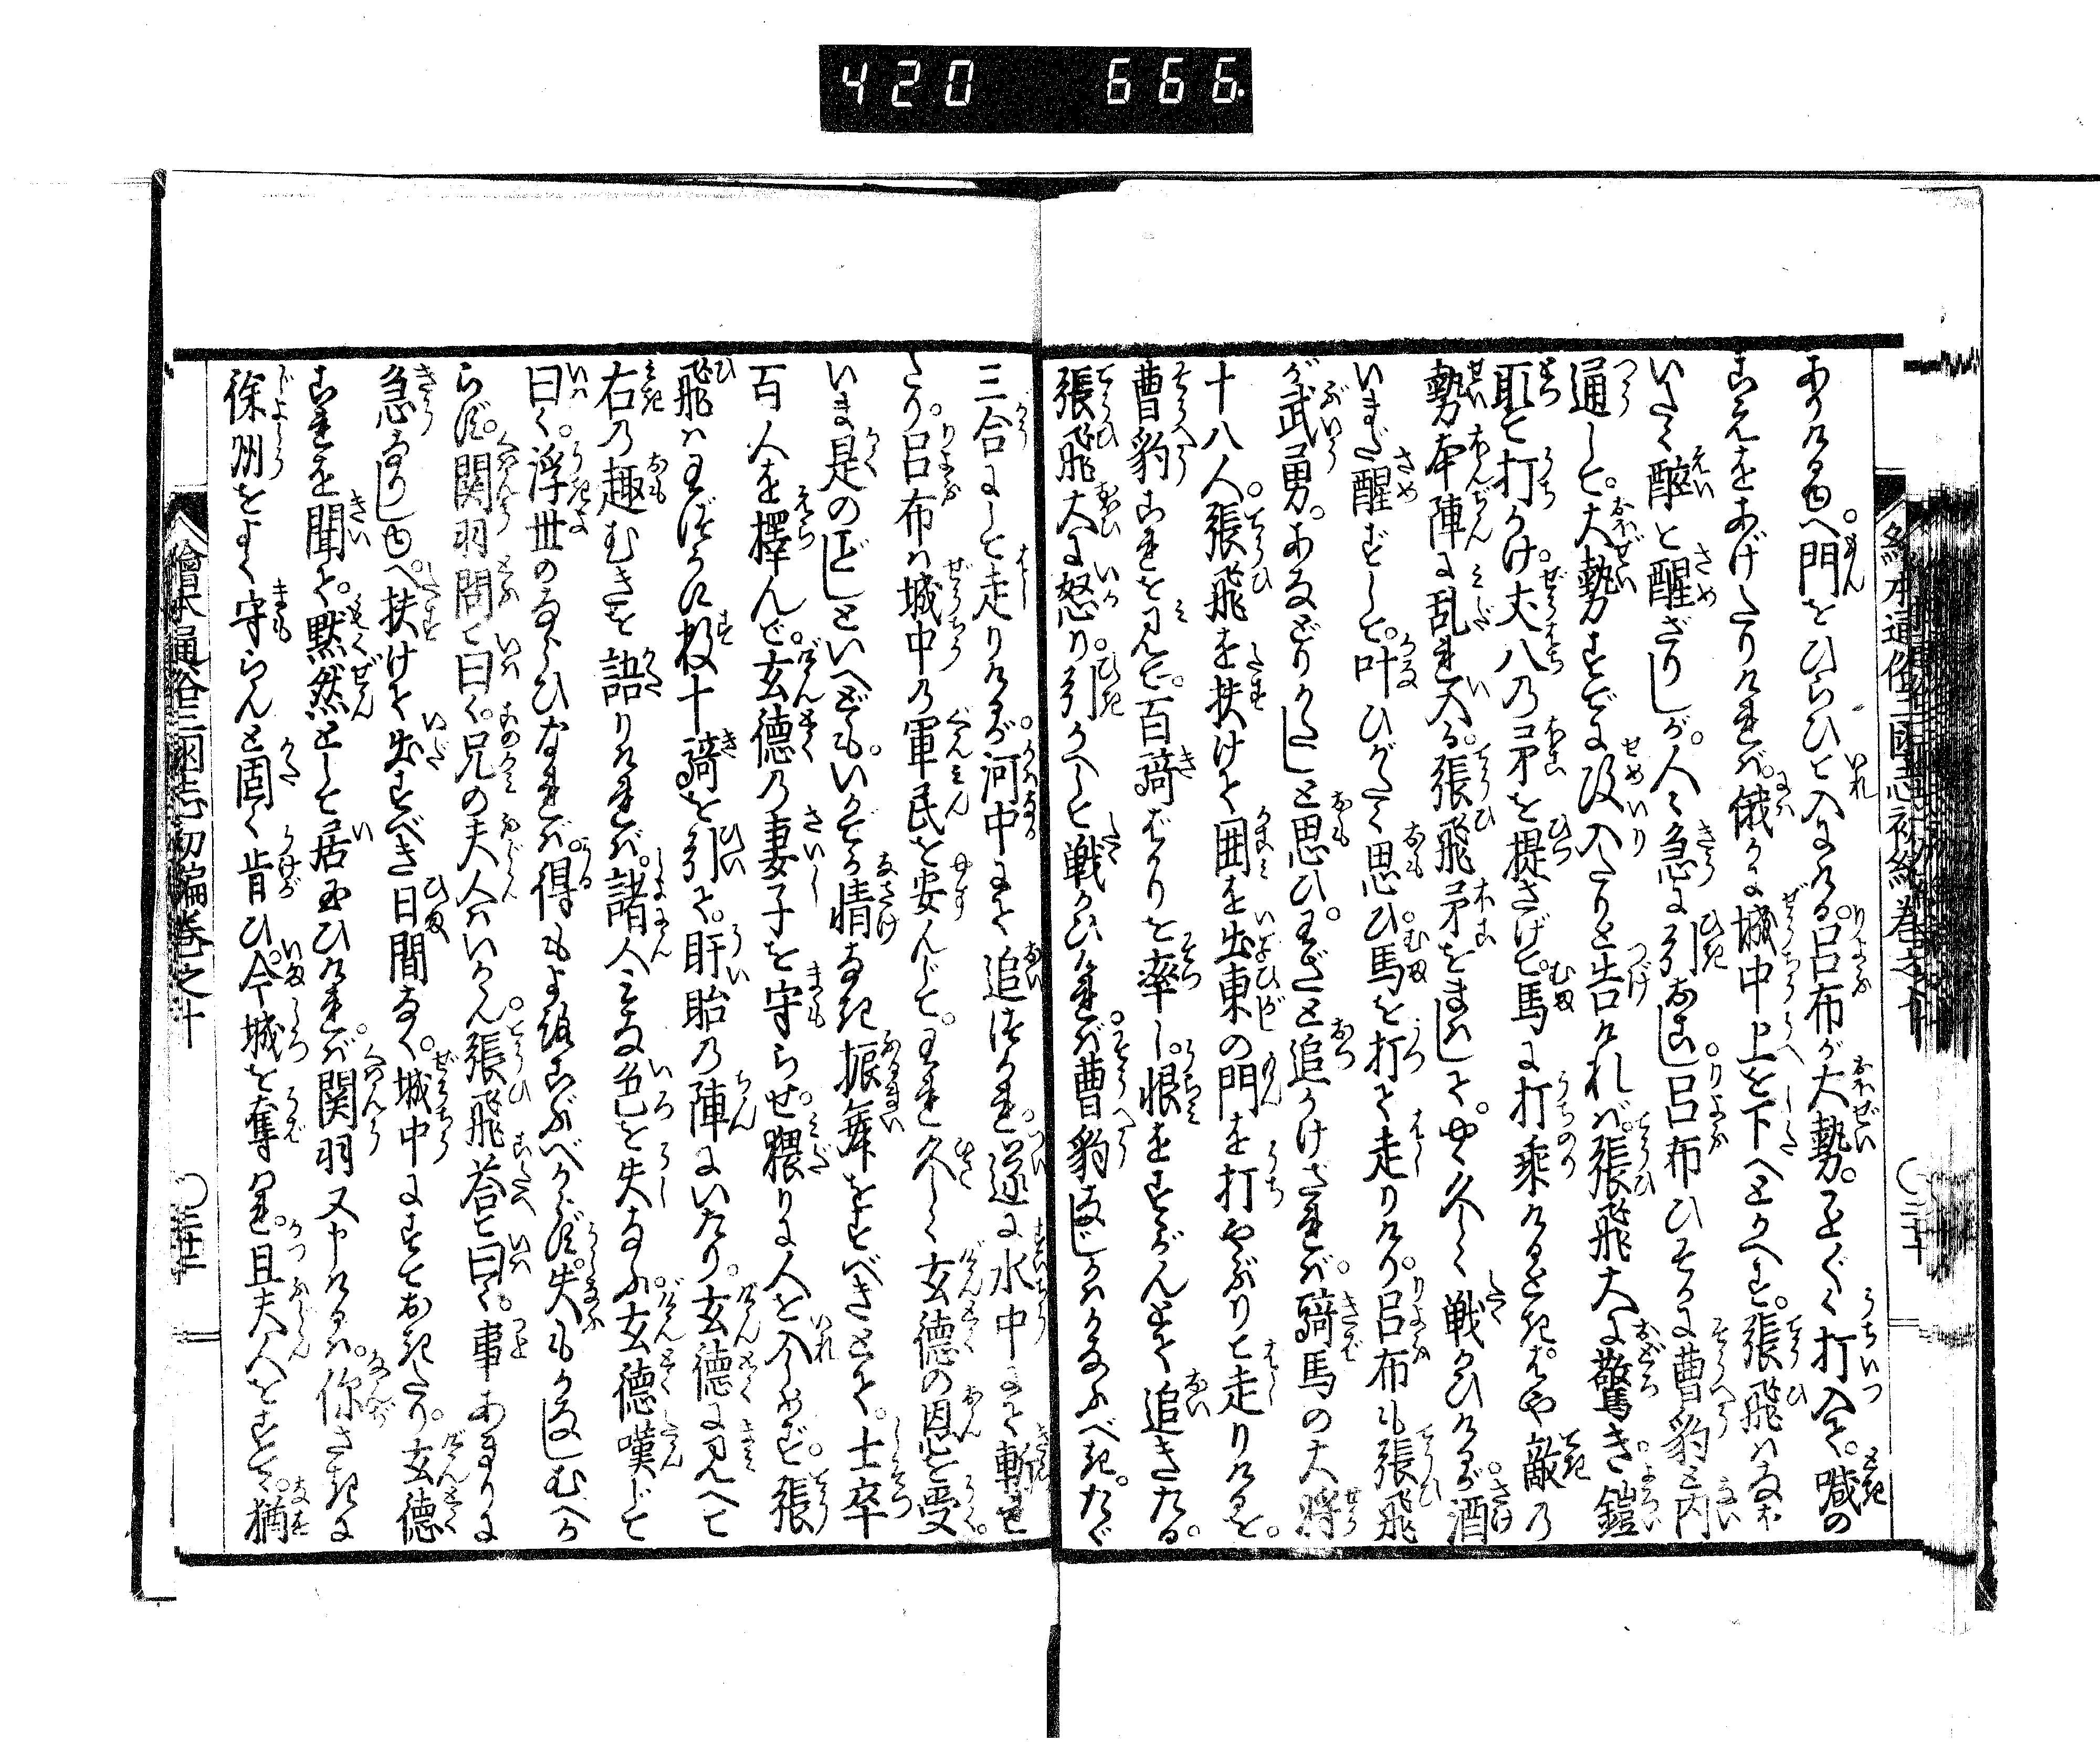 420 666
ありけるゆへ門をひらひて入にける。呂布が大勢。をめく打入て。喊の
こえをあげたりければ。俄に城中上を下へとかへす。張飛はなほ
いたく酔て醒ざりしが。人々急に引おこし。呂布ひそかに曹豹と内
通して。大勢すでに攻入たりと告ければ。張飛大に驚き。鎧
取て打かけ。丈八の矛を提さげて。馬に打乗けるとき。はや敵の
勢本陣に乱れ入る。張飛矛をまはして。やゝ久しく戦かひけるが。酒
いまだ醒ずして。叶ひがたく思ひ。馬を打て走りけり。呂布も張飛
が武勇。あなどりがたしと思ひ。わざと追かけざれば。騎馬の大将
十八人。張飛を扶けて囲を出。東の門を打やぶりて走りけるを。
曹豹これを見て。百騎ばかりを率し。恨をすゝがんとて追きたる。
張飛大に怒り。引かへして戦かひければ。曹豹なじかはかなふべき。たゞ
三合にして走りけるが。河中まで追つめられ。遂に水中にて斬せ
たり。呂布は城中の軍民を安んじて。われ久しく玄徳の恩を受。
いま是のごとしといへども。いかでか情なき振舞をすべきとて。士卒
百人を擇んで。玄徳の妻子を守らせ。猥りに人を入しめず。張
飛はわづかに数十騎を引て。盱眙の陣にいたり。玄徳に見へて
右の趣むきを語りければ。諸人みな色を失なふ。玄徳嘆じて
曰く。浮世のならひなれば。得もよろこぶべからず。失もかなしむべか
らず。関羽問て曰く。兄の夫人はいかん。張飛答て曰く。事あまりに
急なりしゆへ。扶けて出すべき日間なく。城中にすておきたり。玄徳
これを聞て。黙然として居玉ひければ。関羽又申けるは。你さきに
徐州をよく守らんと固く肯ひ。今城を奪れ。且夫人をすて。猶
繪本通俗三國志初編巻之十